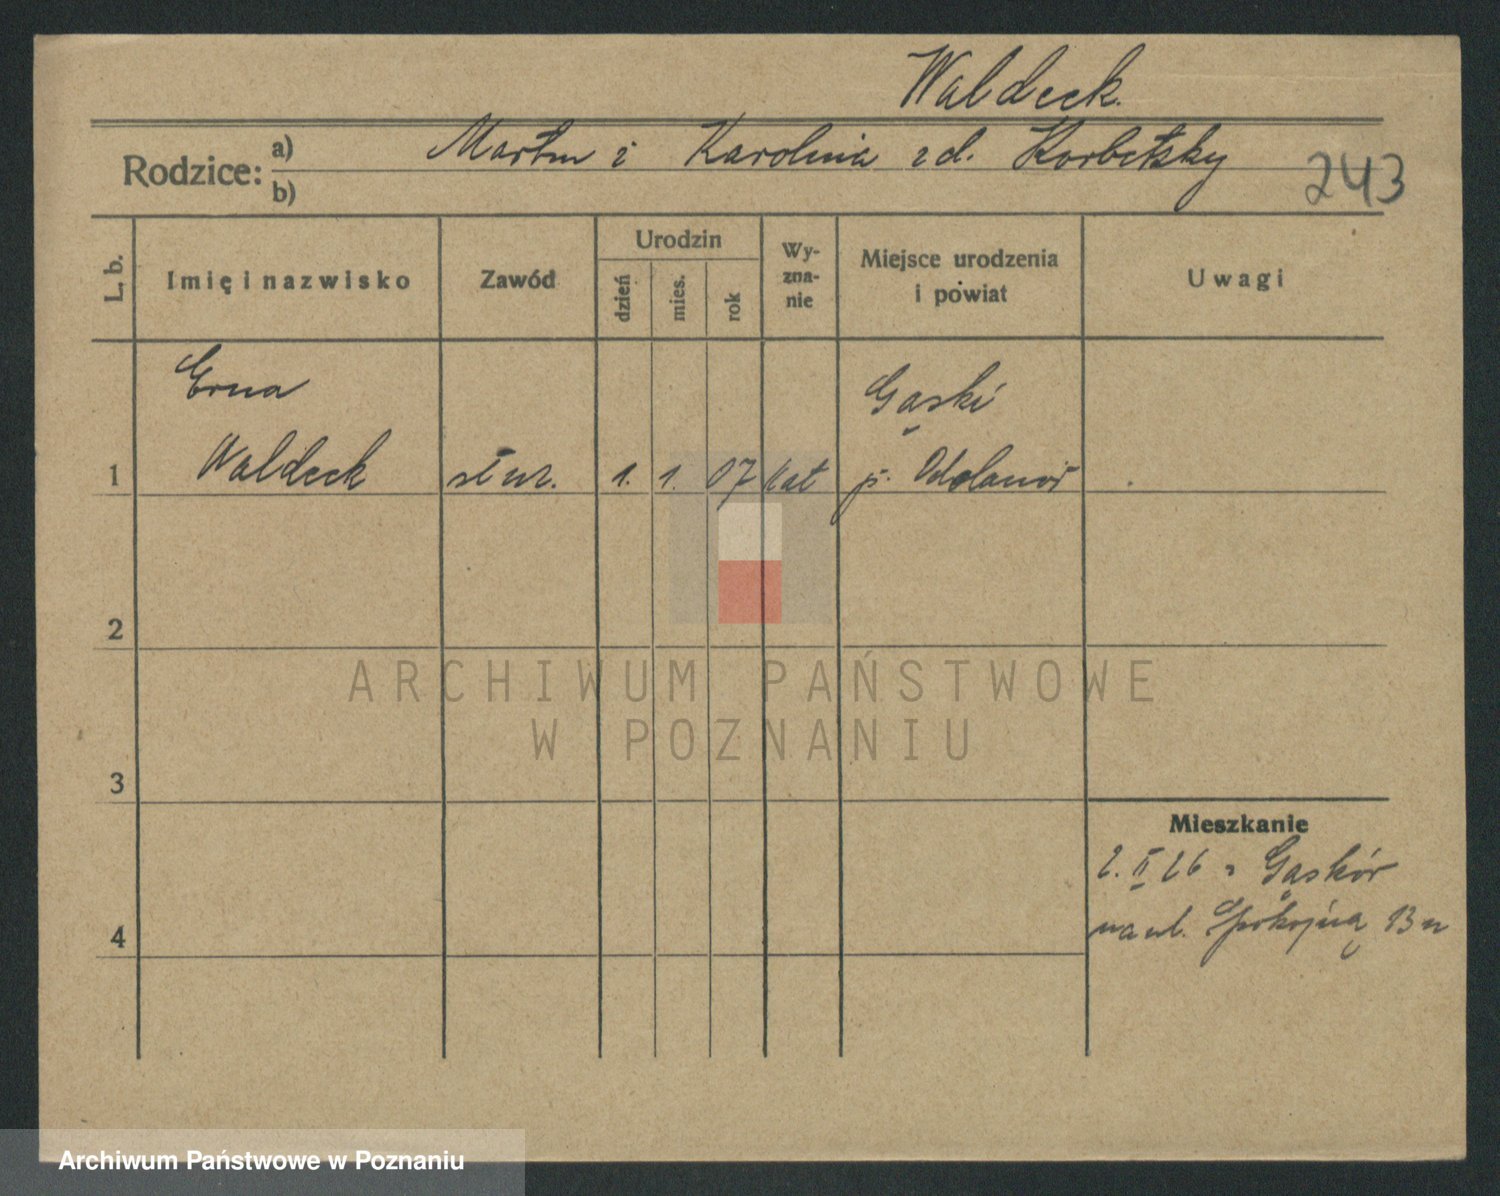 Waldeck.
Rodzice: a) Martin i Karolina zd. Korbetsky
b)
243
L. b. Imię i nazwisko Zawód Urodzin dzień mies. rok Wy-zna-nie Miejsce urodzenia i powiat Uwagi
Erna Gąski
1 Waldeck 1. 1. 07 kat p. Odolanów
2
3
4
Mieszkanie
2. II 26 z Gąskór
na ul. Spokojną 13
ARCHIWUM PAŃSTWOWE
W POZNANIU
Archiwum Państwowe w Poznaniu